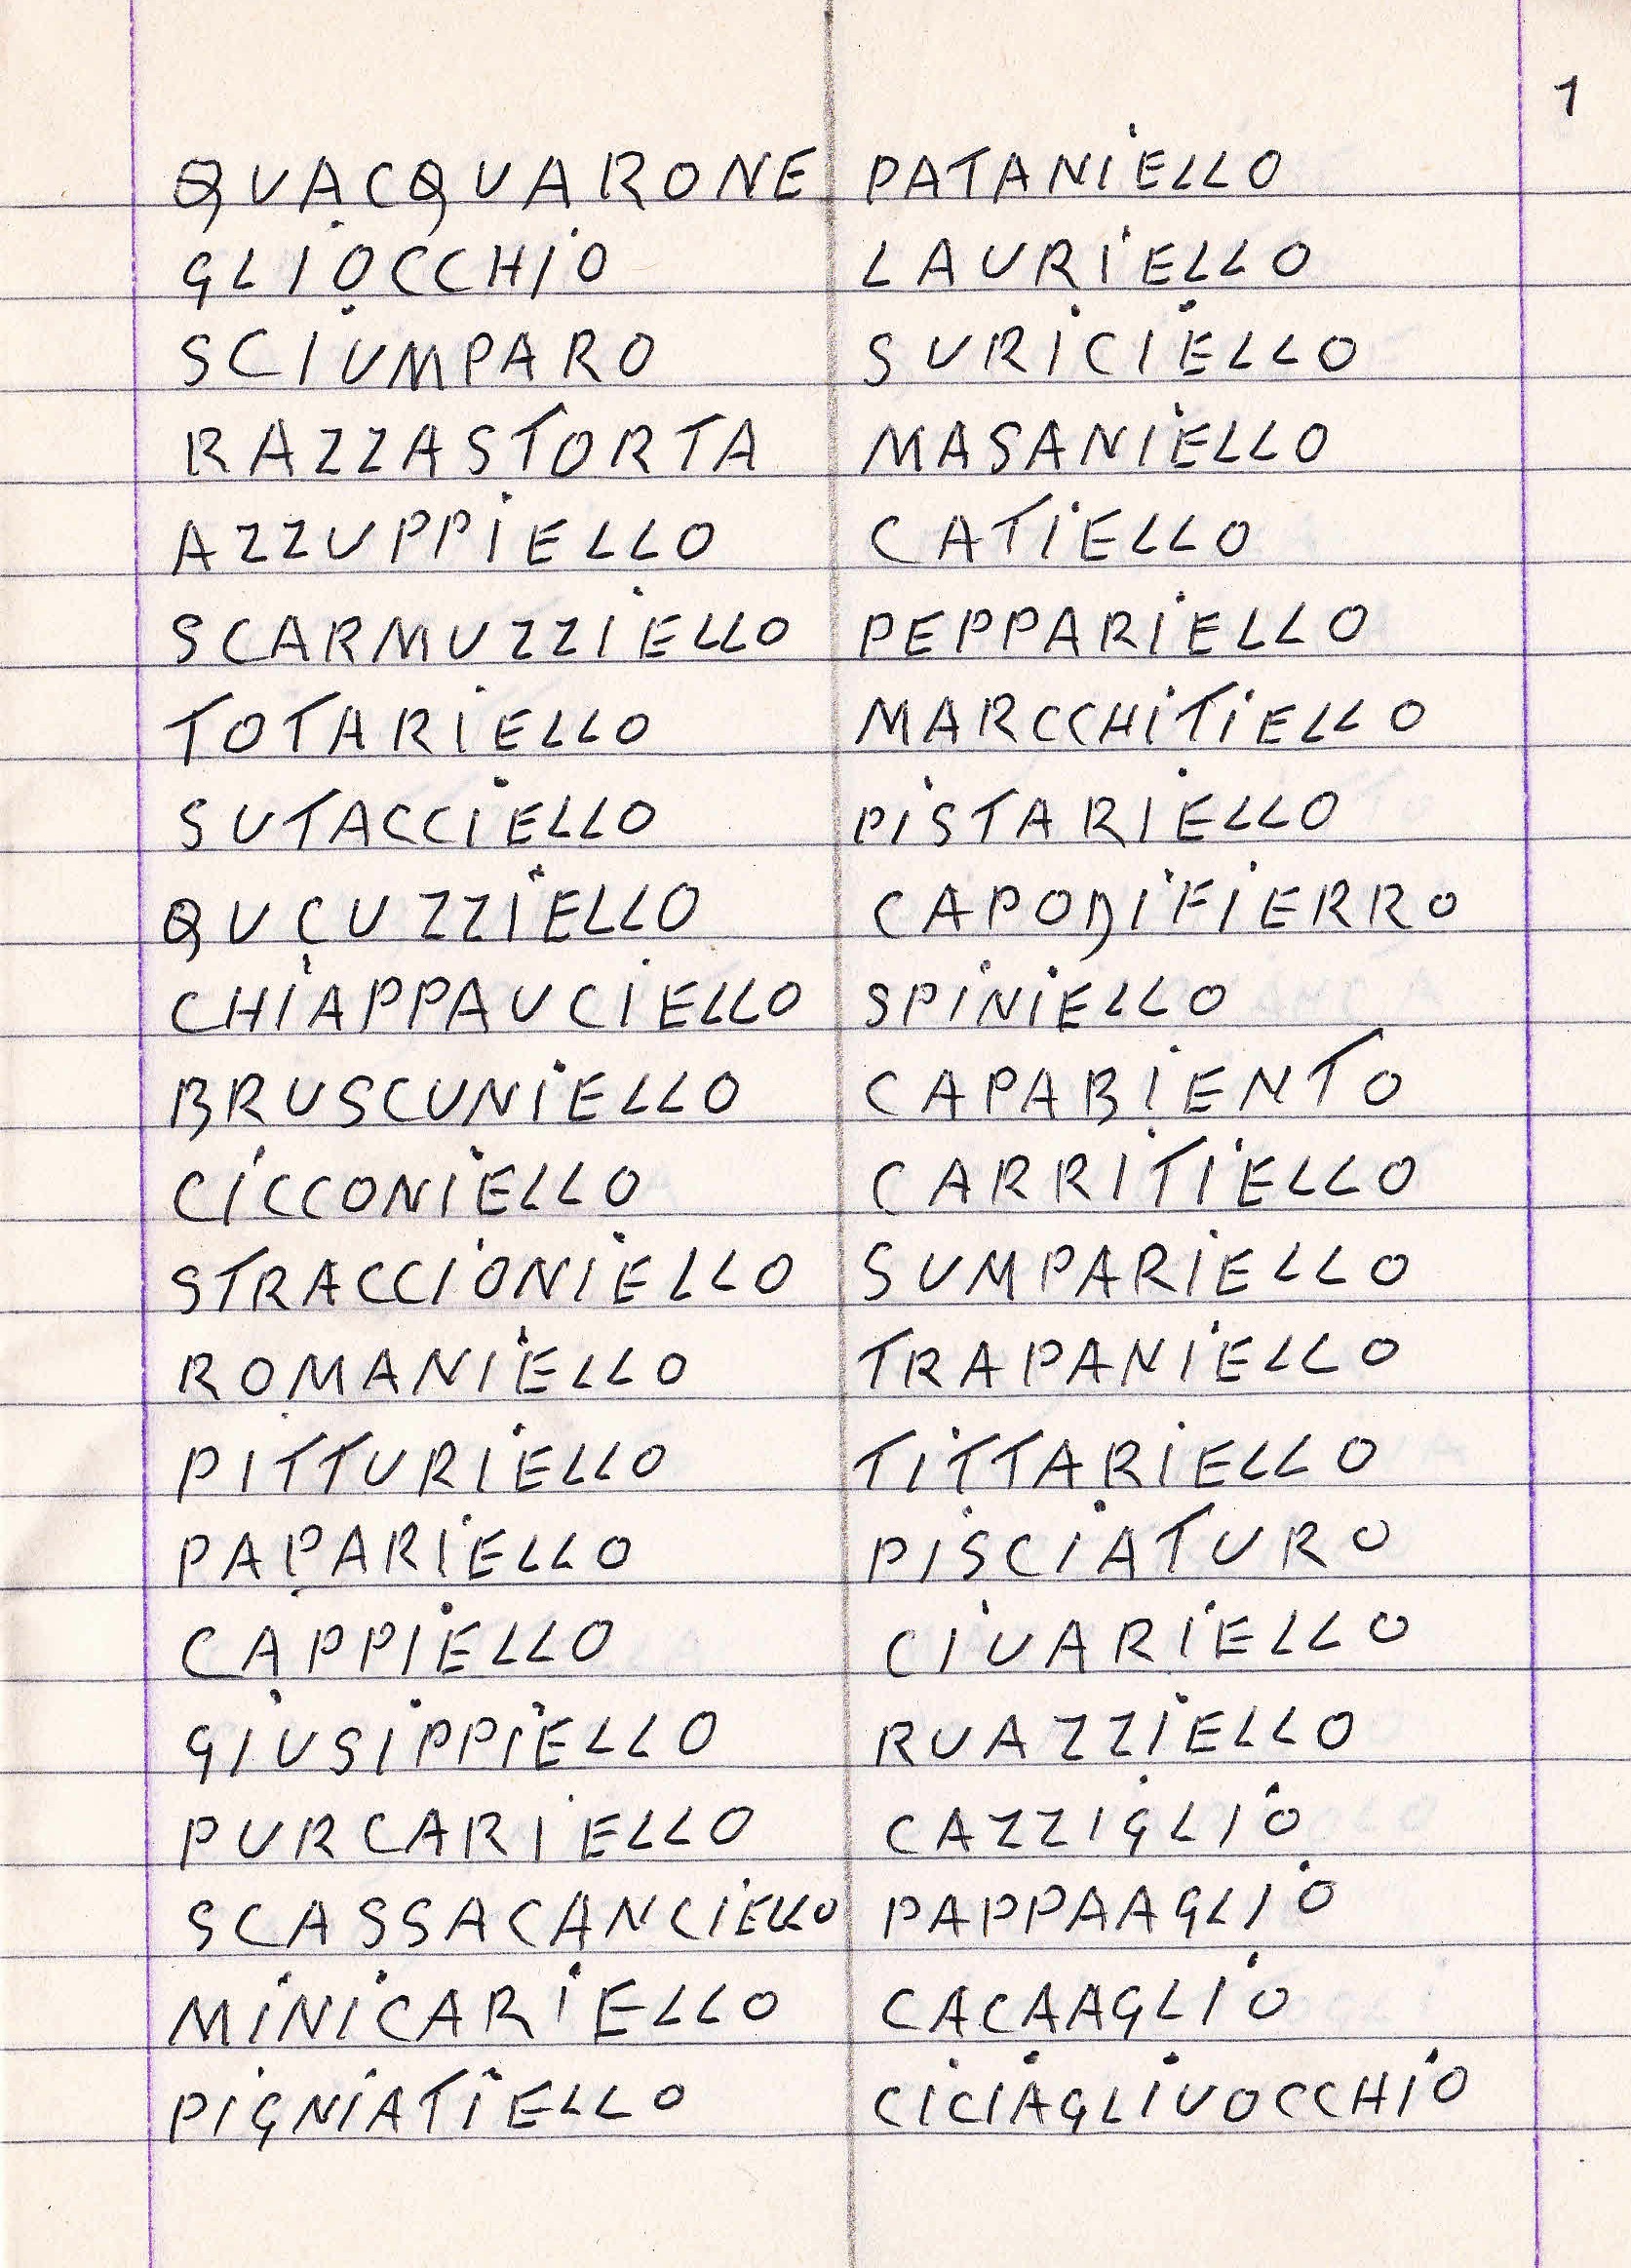 1
QUACQUARONE
GLIOCCHIO
SCIUMPARO
RAZZASTORTA
AZZUPPIELLO
SCARMUZZIELLO
TOTARIELLO
SUTACCIELLO
QUCUZZIELLO
CHIAPPAUCIELLO
BRUSCUNIELLO
CICCONIELLO
STRACCIONIELLO
ROMANIELLO
PITTURIELLO
PAPARIELLO
CAPPIELLO
GIUSIPPIELLO
PURCARIELLO
SCASSACANCIELLO
MINICARIELLO
PIGNIATIELLO
PATANIELLO
LAURIELLO
SURICIELLO
MASANIELLO
CATIELLO
PEPPARIELLO
MARCCHITIELLO
PISTARIELLO
CAPODIFIERRO
SPINIELLO
CAPABIENTO
CARRITIELLO
SUMPARIELLO
TRAPANIELLO
TITTARIELLO
PISCIATURO
CIUARIELLO
RUAZZIELLO
CAZZIGLIO
PAPPAAGLIO
CACAAGLIO
CICIAGLIUOCCHIO